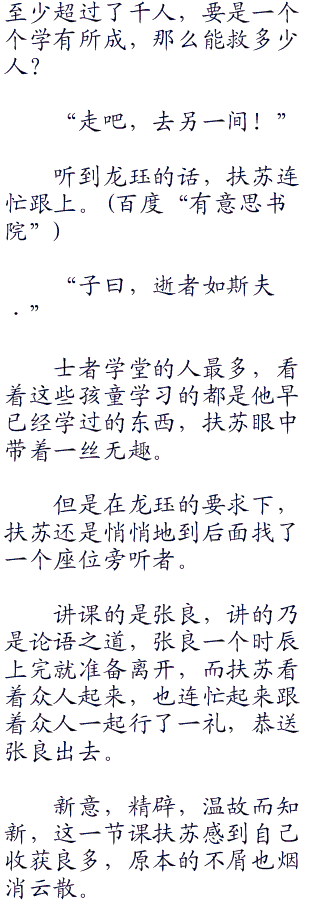 至少超过了千人，要是一个
个学有所成，那么能救多少
人？
“走吧，去另一间！”
听到龙珏的话，扶苏连
忙跟上。(百度“有意思书
院”)
“子曰，逝者如斯夫
．”
士者学堂的人最多，看
着这些孩童学习的都是他早
已经学过的东西，扶苏眼中
带着一丝无趣。
但是在龙珏的要求下，
扶苏还是悄悄地到后面找了
一个座位旁听者。
讲课的是张良，讲的乃
是论语之道，张良一个时辰
上完就准备离开，而扶苏看
着众人起来，也连忙起来跟
着众人一起行了一礼，恭送
张良出去。
新意，精辟，温故而知
新，这一节课扶苏感到自己
收获良多，原本的不屑也烟
消云散。